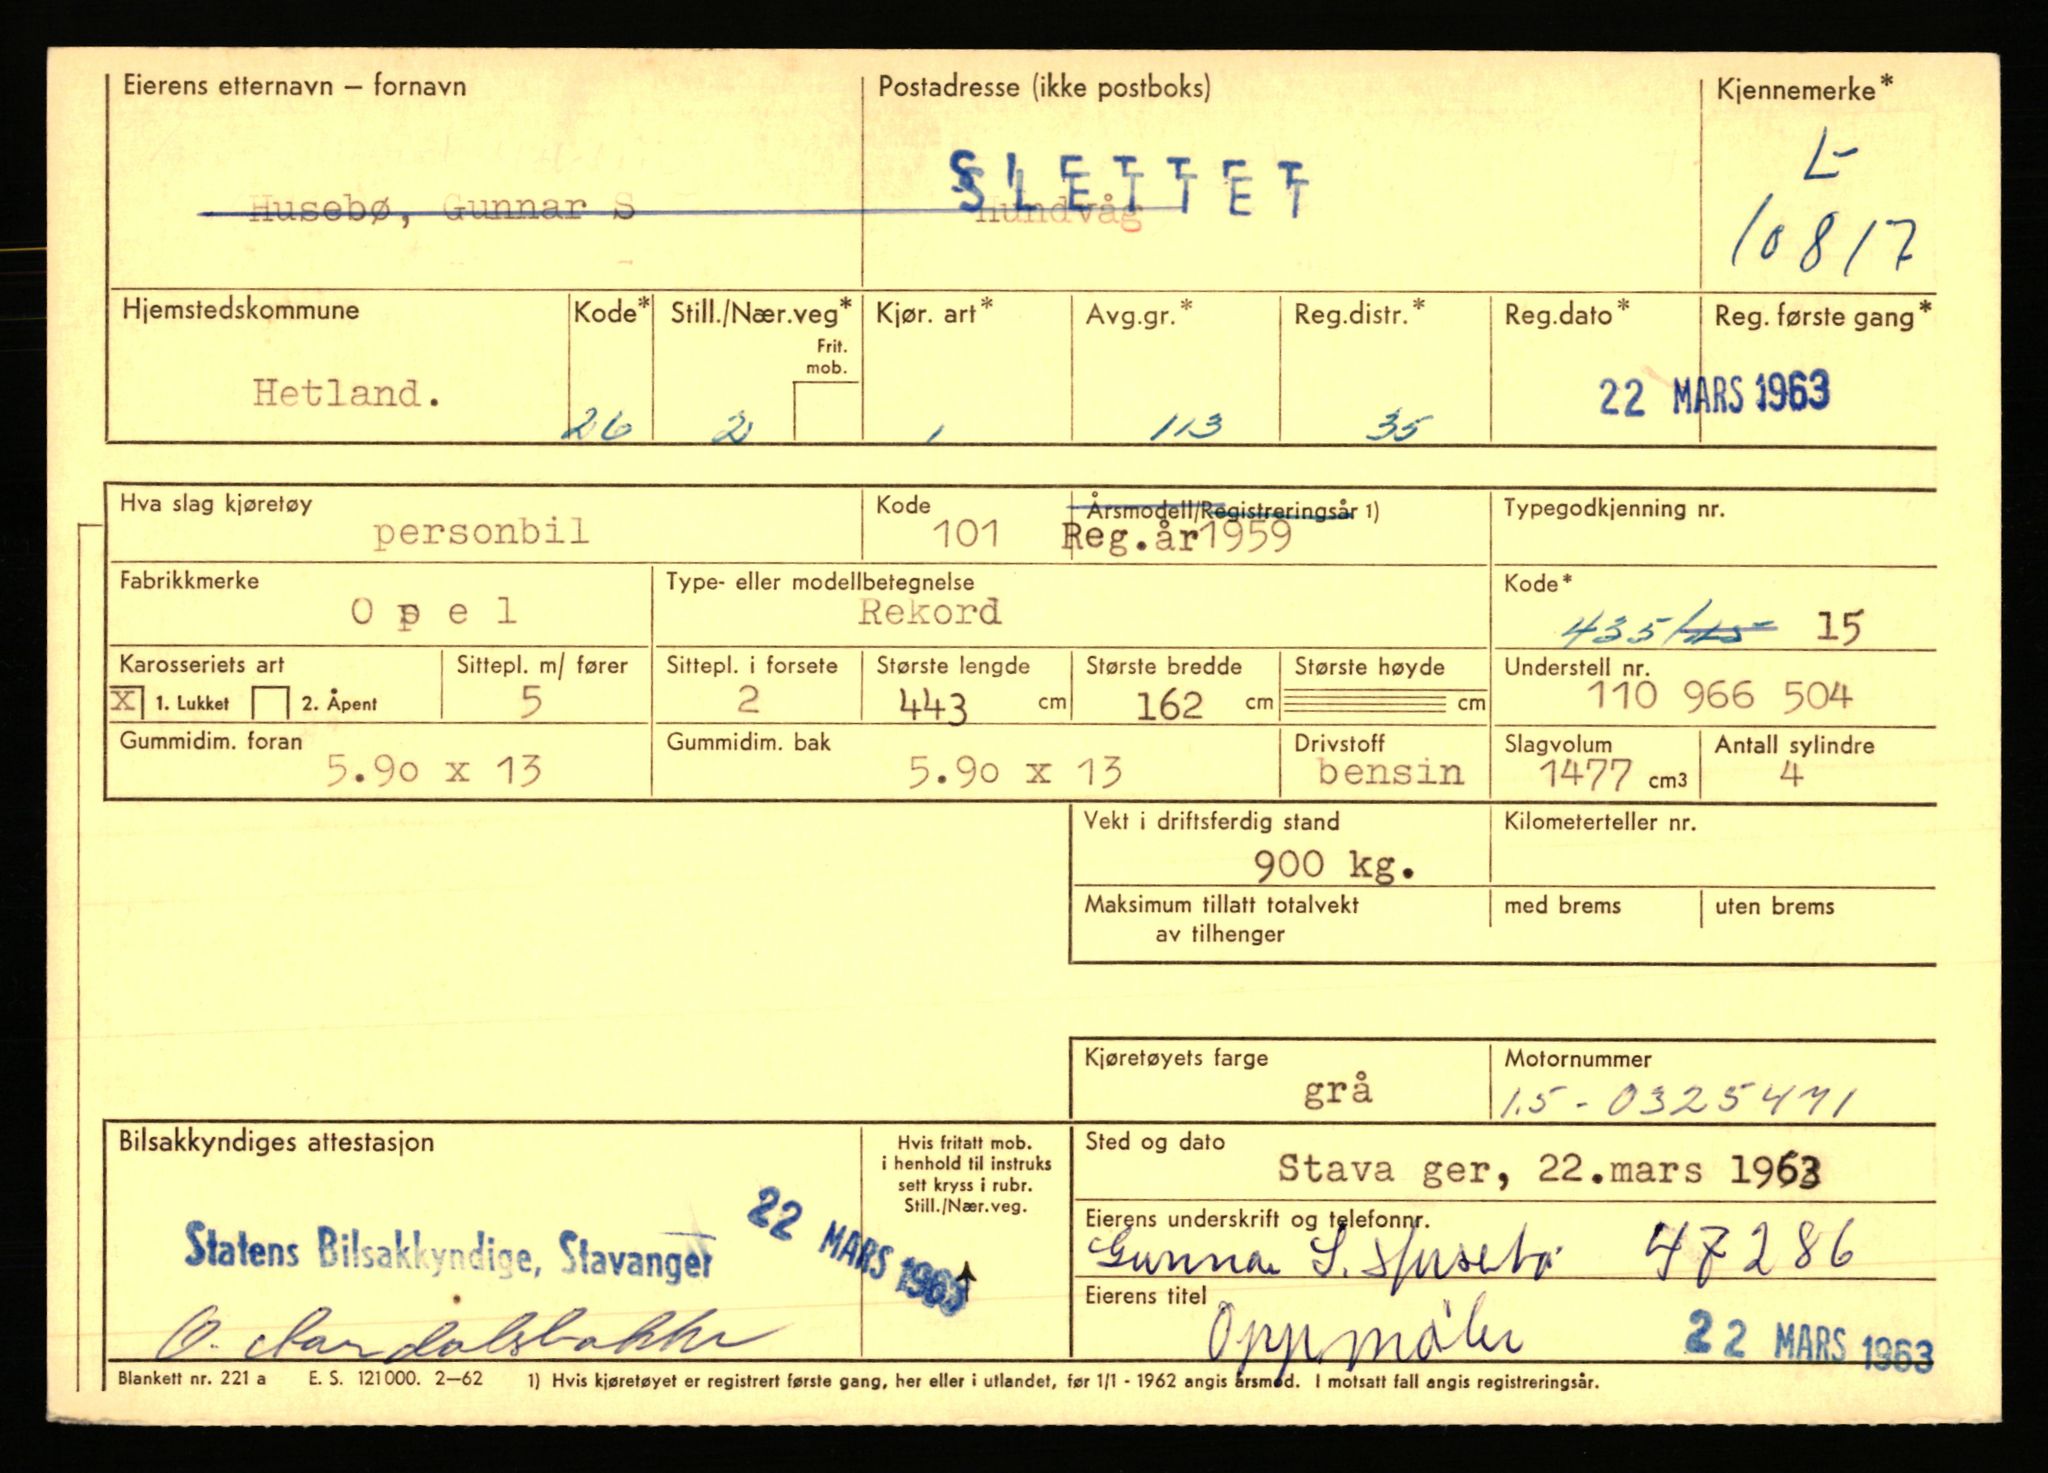 Eierens etternavn – fornavn
Postadresse (ikke postboks)
Kjennemerke*
SLETTET
SLETTET
Husebø, Gunnar S
Hundvåg
L-
10817
Hjemstedskommune
Kode*
Still./Nær.veg*
Kjør. art*
Avg.gr.*
Reg.distr.*
Reg.dato*
Reg. første gang*
Frit.
mob.
Hetland.
26
2
1
113
35
22 MARS 1963
Hva slag kjøretøy
Kode
Årsmodell/Registreringsår 1)
Typegodkjenning nr.
personbil
101
Reg.år1959
Fabrikkmerke
Type- eller modellbetegnelse
Kode*
Opel
Rekord
435/115 15
Karosseriets art
Sittepl. m/ fører
Sittepl. i forsete
Største lengde
Største bredde
Største høyde
Understell nr.
X 1. Lukket 2. Åpent
5
2
443 cm
162 cm
cm
110 966 504
Gummidim. foran
Gummidim. bak
Drivstoff
Slagvolum
Antall sylindre
5.90 x 13
5.90 x 13
bensin
1477 cm3
4
Vekt i driftsferdig stand
Kilometerteller nr.
900 kg.
Maksimum tillatt totalvekt
av tilhenger
med brems
uten brems
Kjøretøyets farge
Motornummer
grå
1.5 - 0325471
Bilsakkyndiges attestasjon
Hvis fritatt mob.
i henhold til instruks
sett kryss i rubr.
Still./Nær.veg.
Sted og dato
Stava ger, 22.mars 1963
22 MARS 1963
Statens Bilsakkyndige, Stavanger
Eierens underskrift og telefonnr.
Gunnar S. Husebø 47286
Eierens titel
Oppmåler
22 MARS 1963
Blankett nr. 221 a E. S. 121000. 2–62 1) Hvis kjøretøyet er registrert første gang, her eller i utlandet, før 1/1 - 1962 angis årsmod. I motsatt fall angis registreringsår.